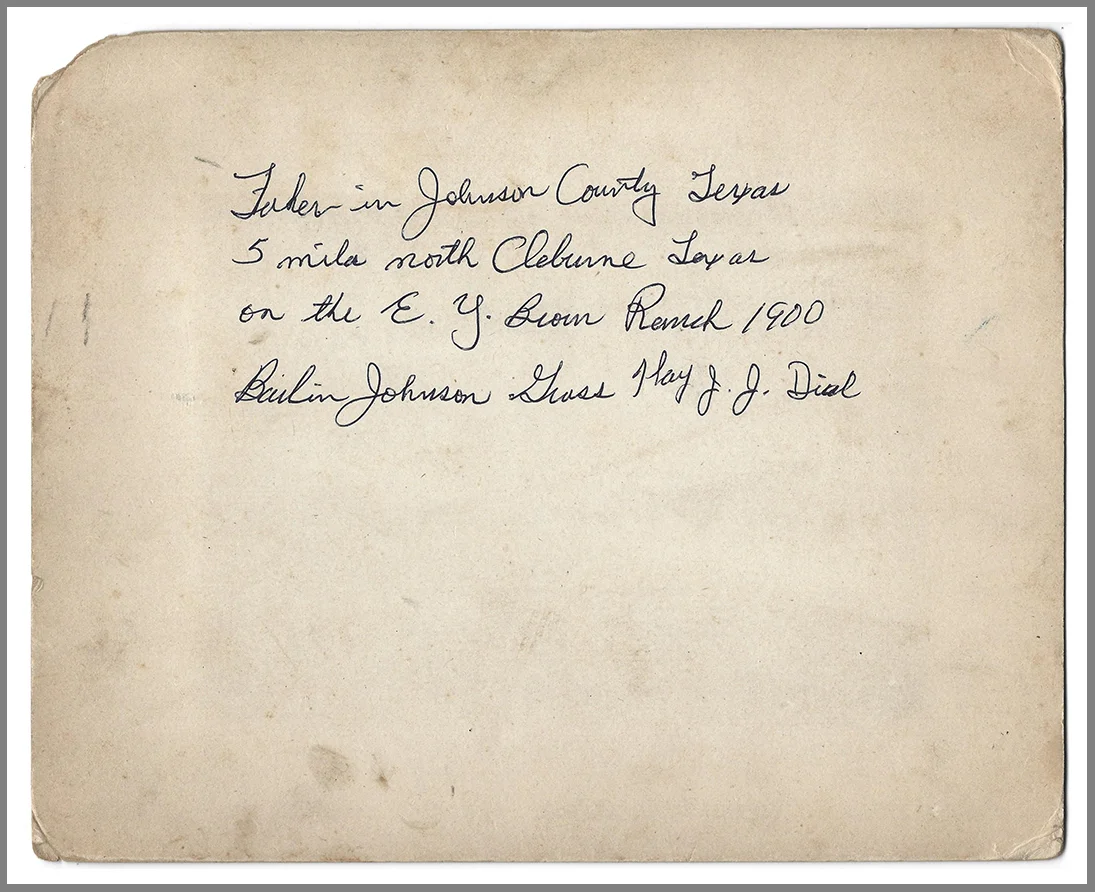 Taken in Johnson County Texas
5 mile north Cleburne Texas
on the E. Y. Brown Ranch 1900
Bailin Johnson Grass Hay J. J. Dial